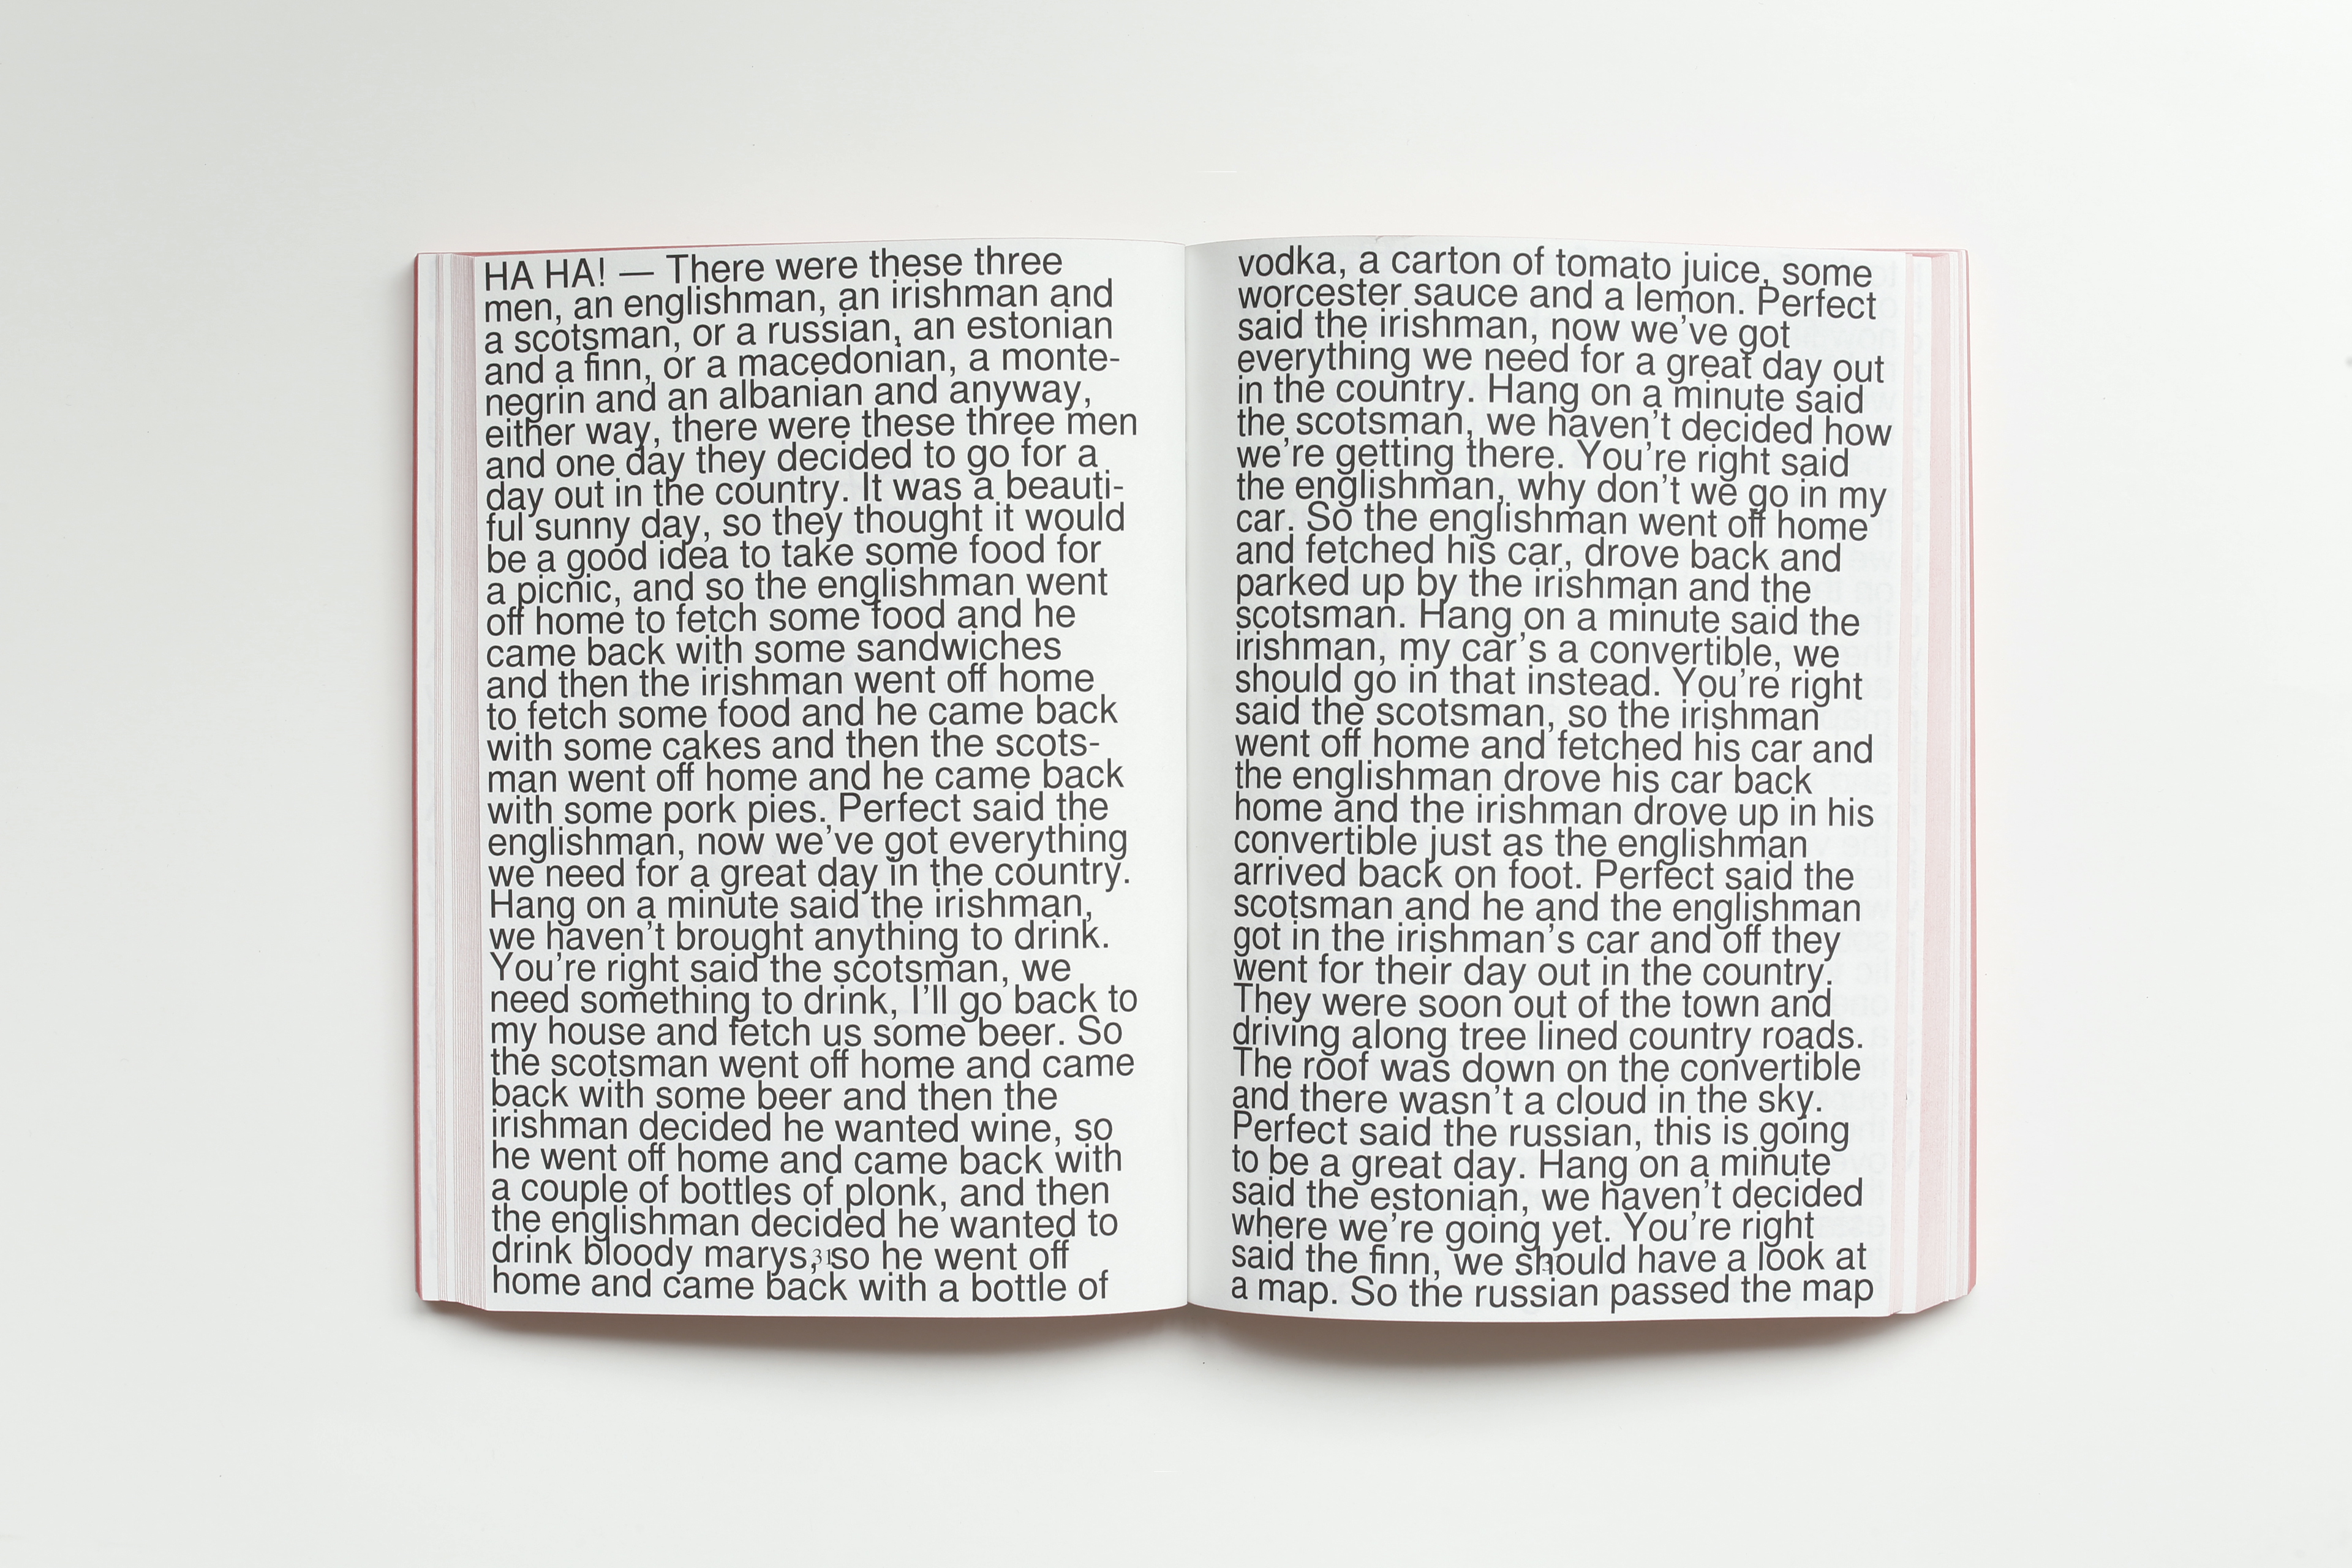 HA HA! — There were these three
men, an englishman, an irishman and
a scotsman, or a russian, an estonian
and a finn, or a macedonian, a monte-
negrin and an albanian and anyway,
either way, there were these three men
and one day they decided to go for a
day out in the country. It was a beauti-
ful sunny day, so they thought it would
be a good idea to take some food for
a picnic, and so the englishman went
off home to fetch some food and he
came back with some sandwiches
and then the irishman went off home
to fetch some food and he came back
with some cakes and then the scots-
man went off home and he came back
with some pork pies. Perfect said the
englishman, now we’ve got everything
we need for a great day in the country.
Hang on a minute said the irishman,
we haven’t brought anything to drink.
You’re right said the scotsman, we
need something to drink, I’ll go back to
my house and fetch us some beer. So
the scotsman went off home and came
back with some beer and then the
irishman decided he wanted wine, so
he went off home and came back with
a couple of bottles of plonk, and then
the englishman decided he wanted to
drink bloody marys, so he went off
home and came back with a bottle of
31
vodka, a carton of tomato juice, some
worcester sauce and a lemon. Perfect
said the irishman, now we’ve got
everything we need for a great day out
in the country. Hang on a minute said
the scotsman, we haven’t decided how
we’re getting there. You’re right said
the englishman, why don’t we go in my
car. So the englishman went off home
and fetched his car, drove back and
parked up by the irishman and the
scotsman. Hang on a minute said the
irishman, my car’s a convertible, we
should go in that instead. You’re right
said the scotsman, so the irishman
went off home and fetched his car and
the englishman drove his car back
home and the irishman drove up in his
convertible just as the englishman
arrived back on foot. Perfect said the
scotsman and he and the englishman
got in the irishman’s car and off they
went for their day out in the country.
They were soon out of the town and
driving along tree lined country roads.
The roof was down on the convertible
and there wasn’t a cloud in the sky.
Perfect said the russian, this is going
to be a great day. Hang on a minute
said the estonian, we haven’t decided
where we’re going yet. You’re right
said the finn, we should have a look at
a map. So the russian passed the map